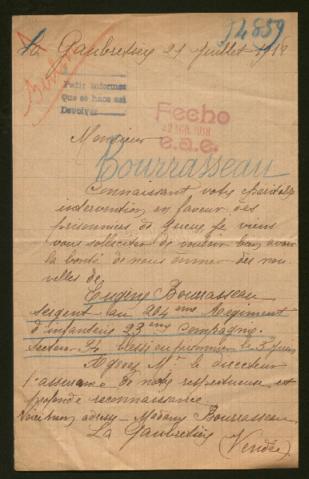 54859
La Gaubretière 21 Juillet 1918
Pedir informes
Que se hace así
Devolver
Fecho
e.a.e.
Monsieur
Bourrasseau
Connaissant votre charitable
intervention en faveur des
prisonniers de guerre je viens
vous solliciter de vouloir bien avoir
la bonté de nous donner des nou
velles de
Eugène Bourrasseau
sergent au 264ème Régiment
d'infanterie 23ème Compagnie
Secteur 94 blessé ou prisonnier le 3 juin
Agréez Mr le directeur
l'assurance de notre respectueuse et
profonde reconnaissance.
Voici mon adresse - Madame Bourrasseau
La Gaubretière
(Vendée)